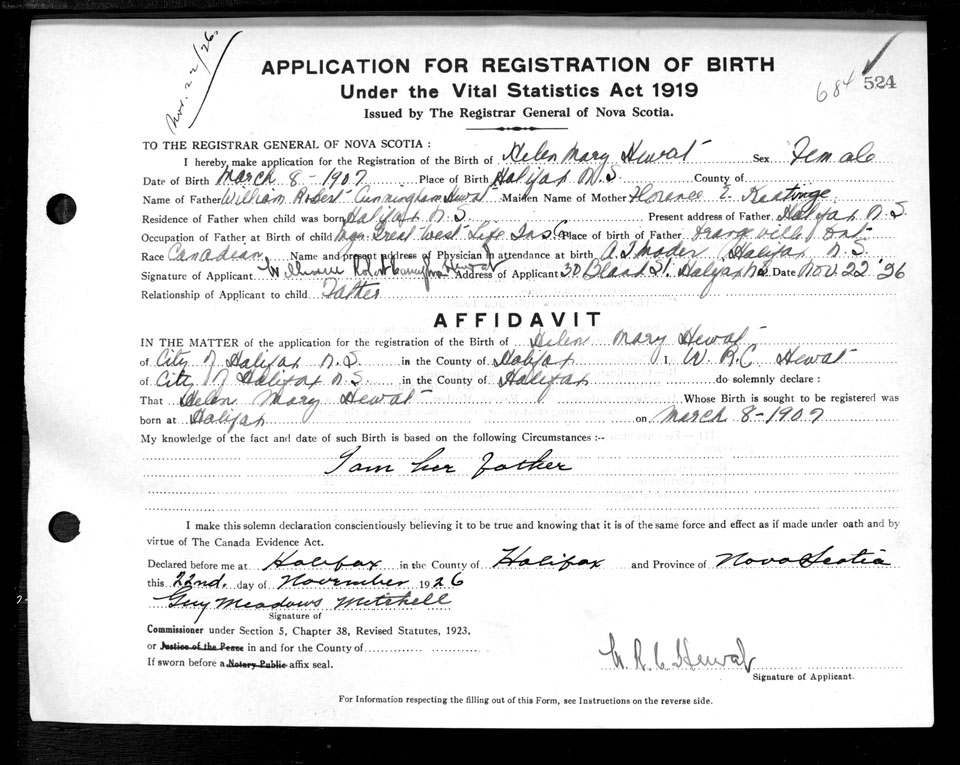 Nov. 22/26.
684 524
APPLICATION FOR REGISTRATION OF BIRTH
Under the Vital Statistics Act 1919
Issued by The Registrar General of Nova Scotia.
TO THE REGISTRAR GENERAL OF NOVA SCOTIA :
I hereby make application for the Registration of the Birth of Helen Mary Hewat Sex Female
Date of Birth March 8-1907 Place of Birth Halifax N.S. County of
Name of Father William Robert Cunningham Hewat Maiden Name of Mother Florence E. Keatinge
Residence of Father when child was born Halifax N.S. Present address of Father Halifax N.S
Occupation of Father at Birth of child Mgr Great West Life Ins Co Place of birth of Father Orangeville Ont
Race Canadian Name and present address of Physician in attendance at birth A.I. Mader Halifax N.S.
Signature of Applicant William Robert Cunningham Hewat Address of Applicant 38 Bland St. Halifax N.S. Date Nov. 22 '26
Relationship of Applicant to child Father
AFFIDAVIT
IN THE MATTER of the application for the registration of the Birth of Helen Mary Hewat
of City of Halifax N.S. in the County of Halifax I, W.R.C. Hewat
of City of Halifax N.S. in the County of Halifax do solemnly declare :
That Helen Mary Hewat Whose Birth is sought to be registered was
born at Halifax on March 8-1907
My knowledge of the fact and date of such Birth is based on the following Circumstances :-
I am her father
I make this solemn declaration conscientiously believing it to be true and knowing that it is of the same force and effect as if made under oath and by
virtue of The Canada Evidence Act.
Declared before me at Halifax in the County of Halifax and Province of Nova Scotia
this 22nd. day of November 1926
Guy Meadows Mitchell
Signature of
Commissioner under Section 5, Chapter 38, Revised Statutes, 1923,
or Justice of the Peace in and for the County of
If sworn before a Notary Public affix seal.
W.R.C. Hewat
Signature of Applicant.
For Information respecting the filling out of this Form, see Instructions on the reverse side.